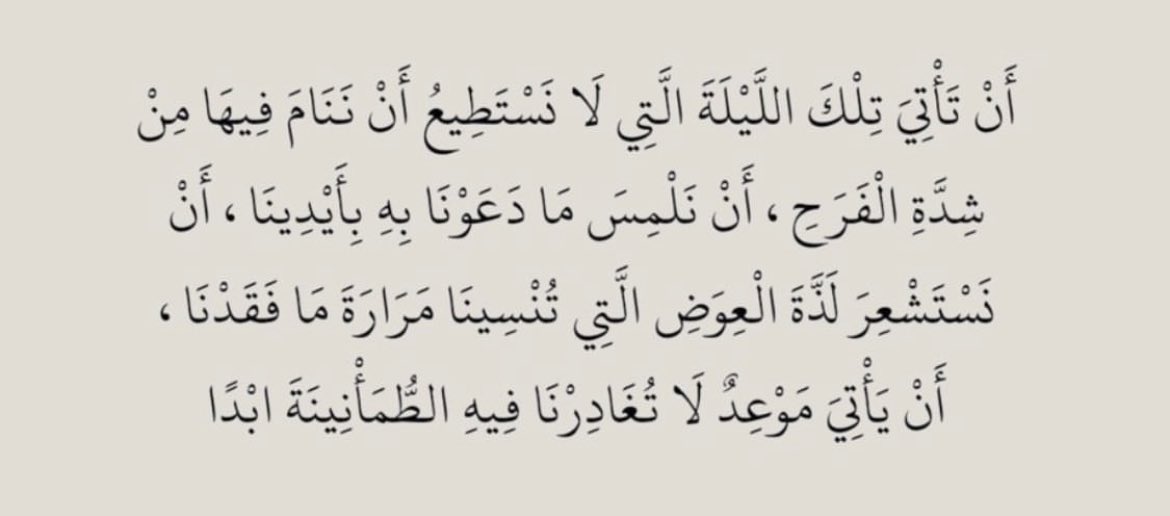 أَنْ تَأْتِيَ تِلْكَ اللَّيْلَةَ الَّتِي لَا نَسْتَطِيعُ أَنْ نَنَامَ فِيهَا مِنْ
شِدَّةِ الْفَرَحِ ، أَنْ نَلْمِسَ مَا دَعَوْنَا بِهِ بِأَيْدِينَا ، أَنْ
نَسْتَشْعِرَ لَذَّةَ الْعِوَضِ الَّتِي تُنْسِينَا مَرَارَةَ مَا فَقَدْنَا ،
أَنْ يَأْتِيَ مَوْعِدٌ لَا تُغَادِرْنَا فِيهِ الطُّمَأْنِينَةَ ابْدًا